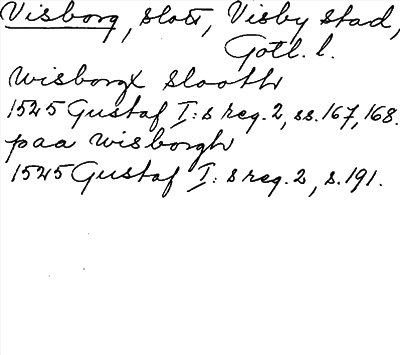 Visborg, slott, Visby stad,
Gotl. l.
wisborgx slooth
1525 Gustaf I:s reg. 2, ss. 167, 168.
paa wisborgh
1525 Gustaf I:s reg. 2, s. 191.